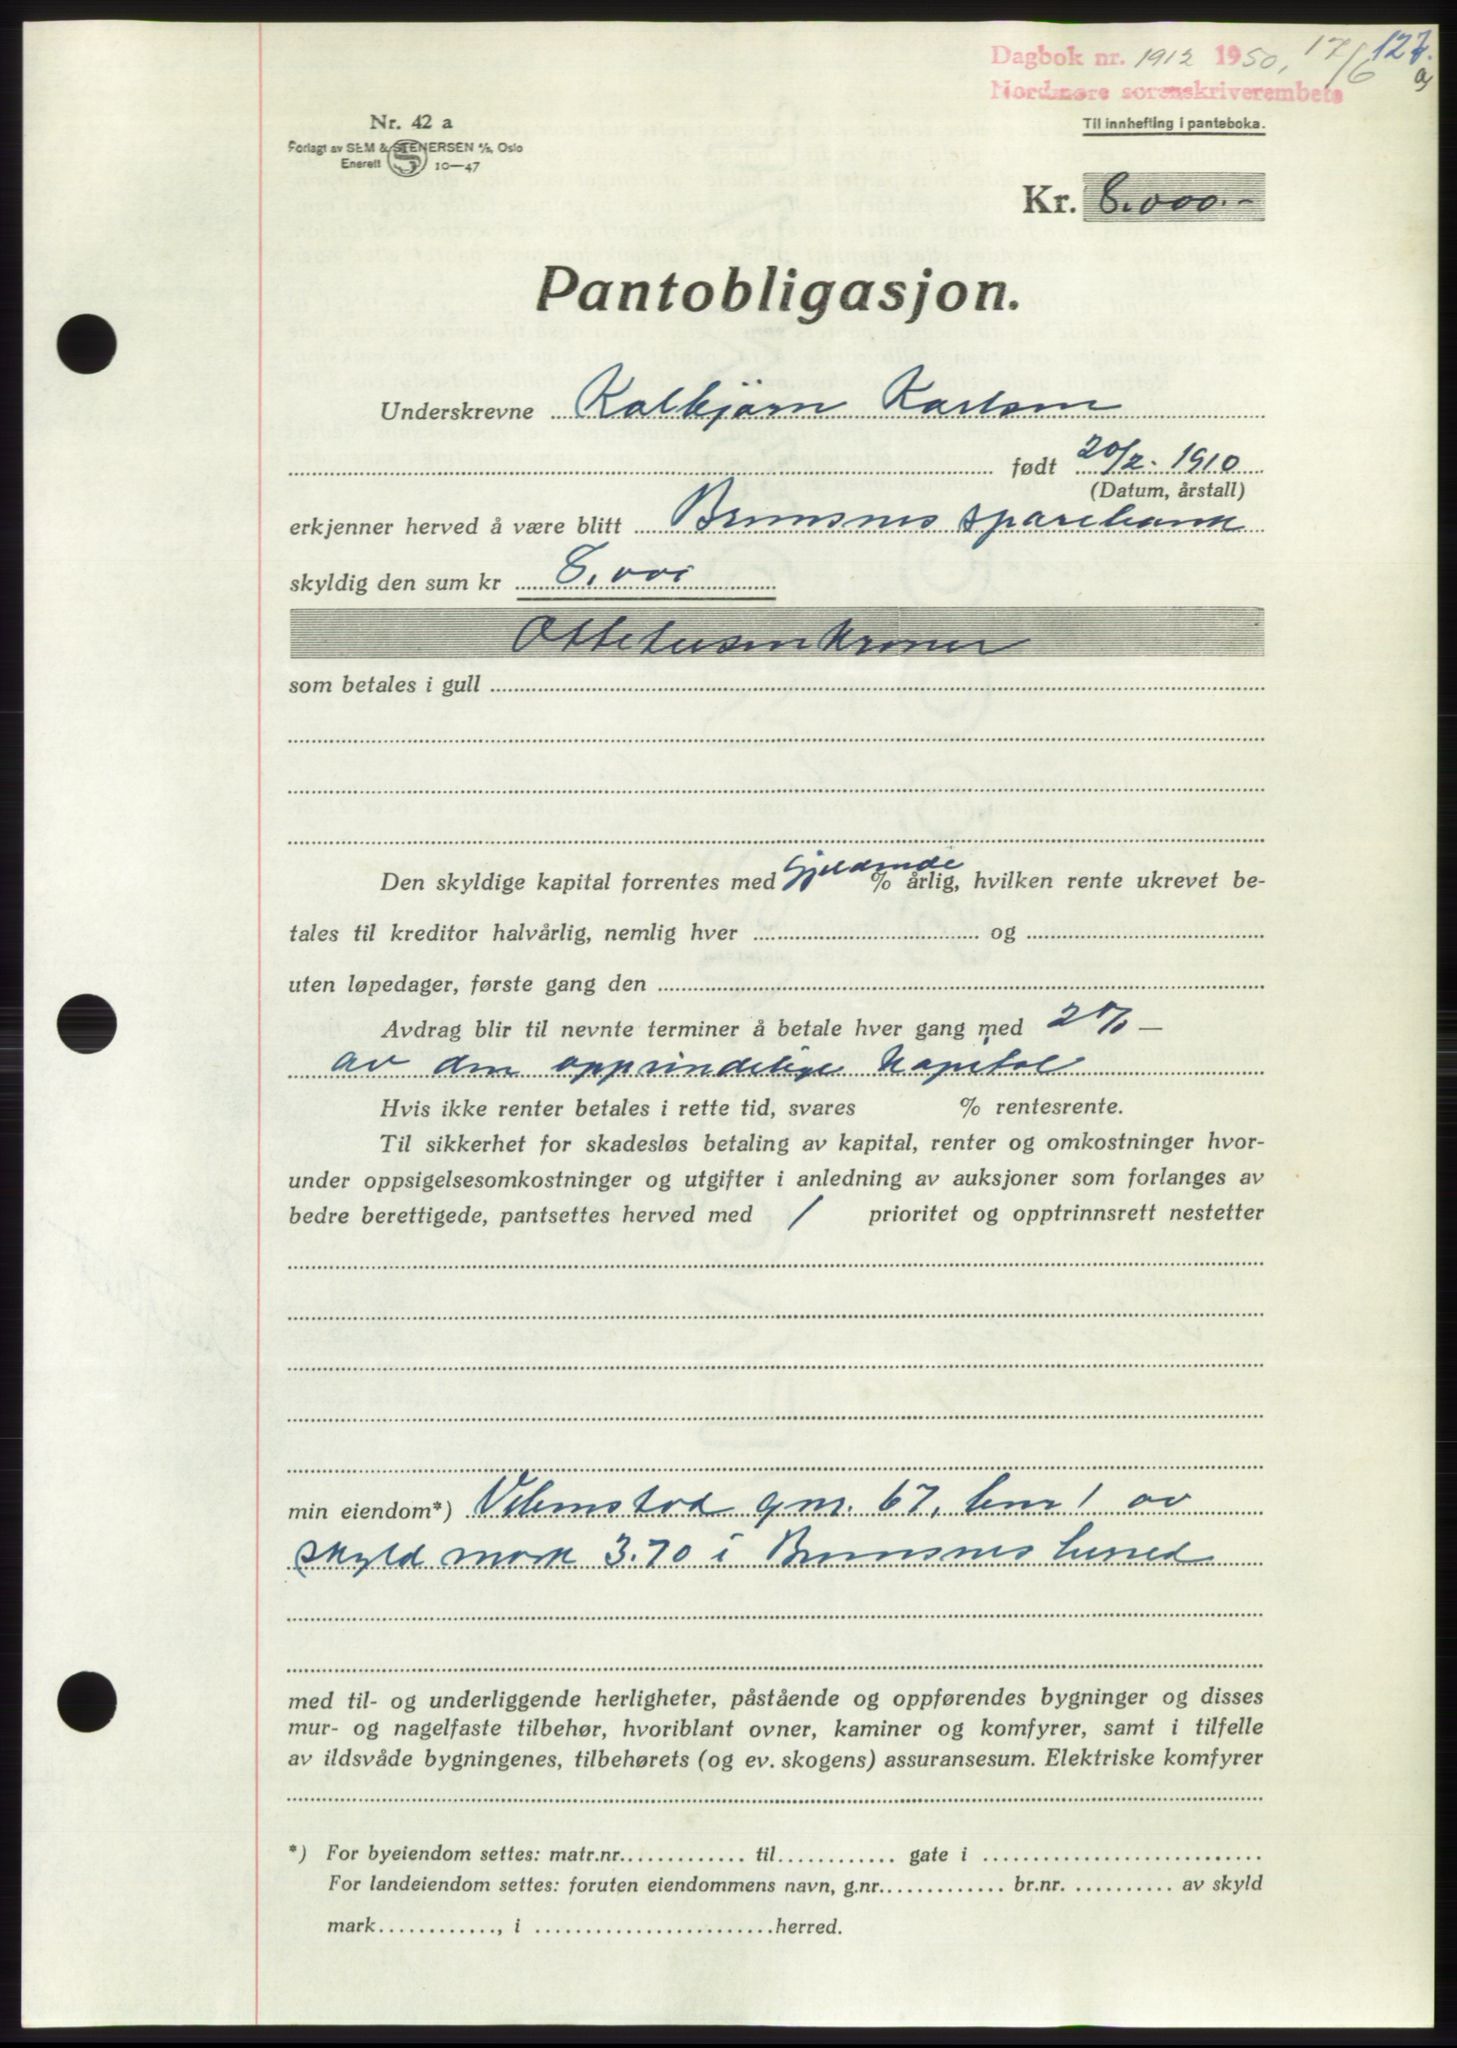 Dagbok nr. 1912 1950, 17/6 127.
a)
Nordmøre sorenskriverembete
Til innhefting i panteboka.
Nr. 42 a
Forlagt av SEM & STENERSEN A/S, Oslo
Enerett 10—47
Kr. 8.000.-
Pantobligasjon.
Underskrevne Kolbjørn Karlsen
født 20/2. 1910
(Datum, årstall)
erkjenner herved å være blitt Bremsnes sparebank
skyldig den sum kr 8.000
Ottetusenkroner
som betales i gull
Den skyldige kapital forrentes med Gjeldende % årlig, hvilken rente ukrevet be-
tales til kreditor halvårlig, nemlig hver og
uten løpedager, første gang den
Avdrag blir til nevnte terminer å betale hver gang med 2% —
av den opprindelige kapital
Hvis ikke renter betales i rette tid, svares % rentesrente.
Til sikkerhet for skadesløs betaling av kapital, renter og omkostninger hvor-
under oppsigelsesomkostninger og utgifter i anledning av auksjoner som forlanges av
bedre berettigede, pantsettes herved med 1 prioritet og opptrinnsrett nestetter
min eiendom*) gnr. 67, bnr 1 av
skyld mark 3.70 i Bremsnes herred
med til- og underliggende herligheter, påstående og oppførendes bygninger og disses
mur- og nagelfaste tilbehør, hvoriblant ovner, kaminer og komfyrer, samt i tilfelle
av ildsvåde bygningenes, tilbehørets (og ev. skogens) assuransesum. Elektriske komfyrer
*) For byeiendom settes: matr.nr. til gate i
For landeiendom settes: foruten eiendommens navn, g.nr. br.nr. av skyld
mark , i herred.